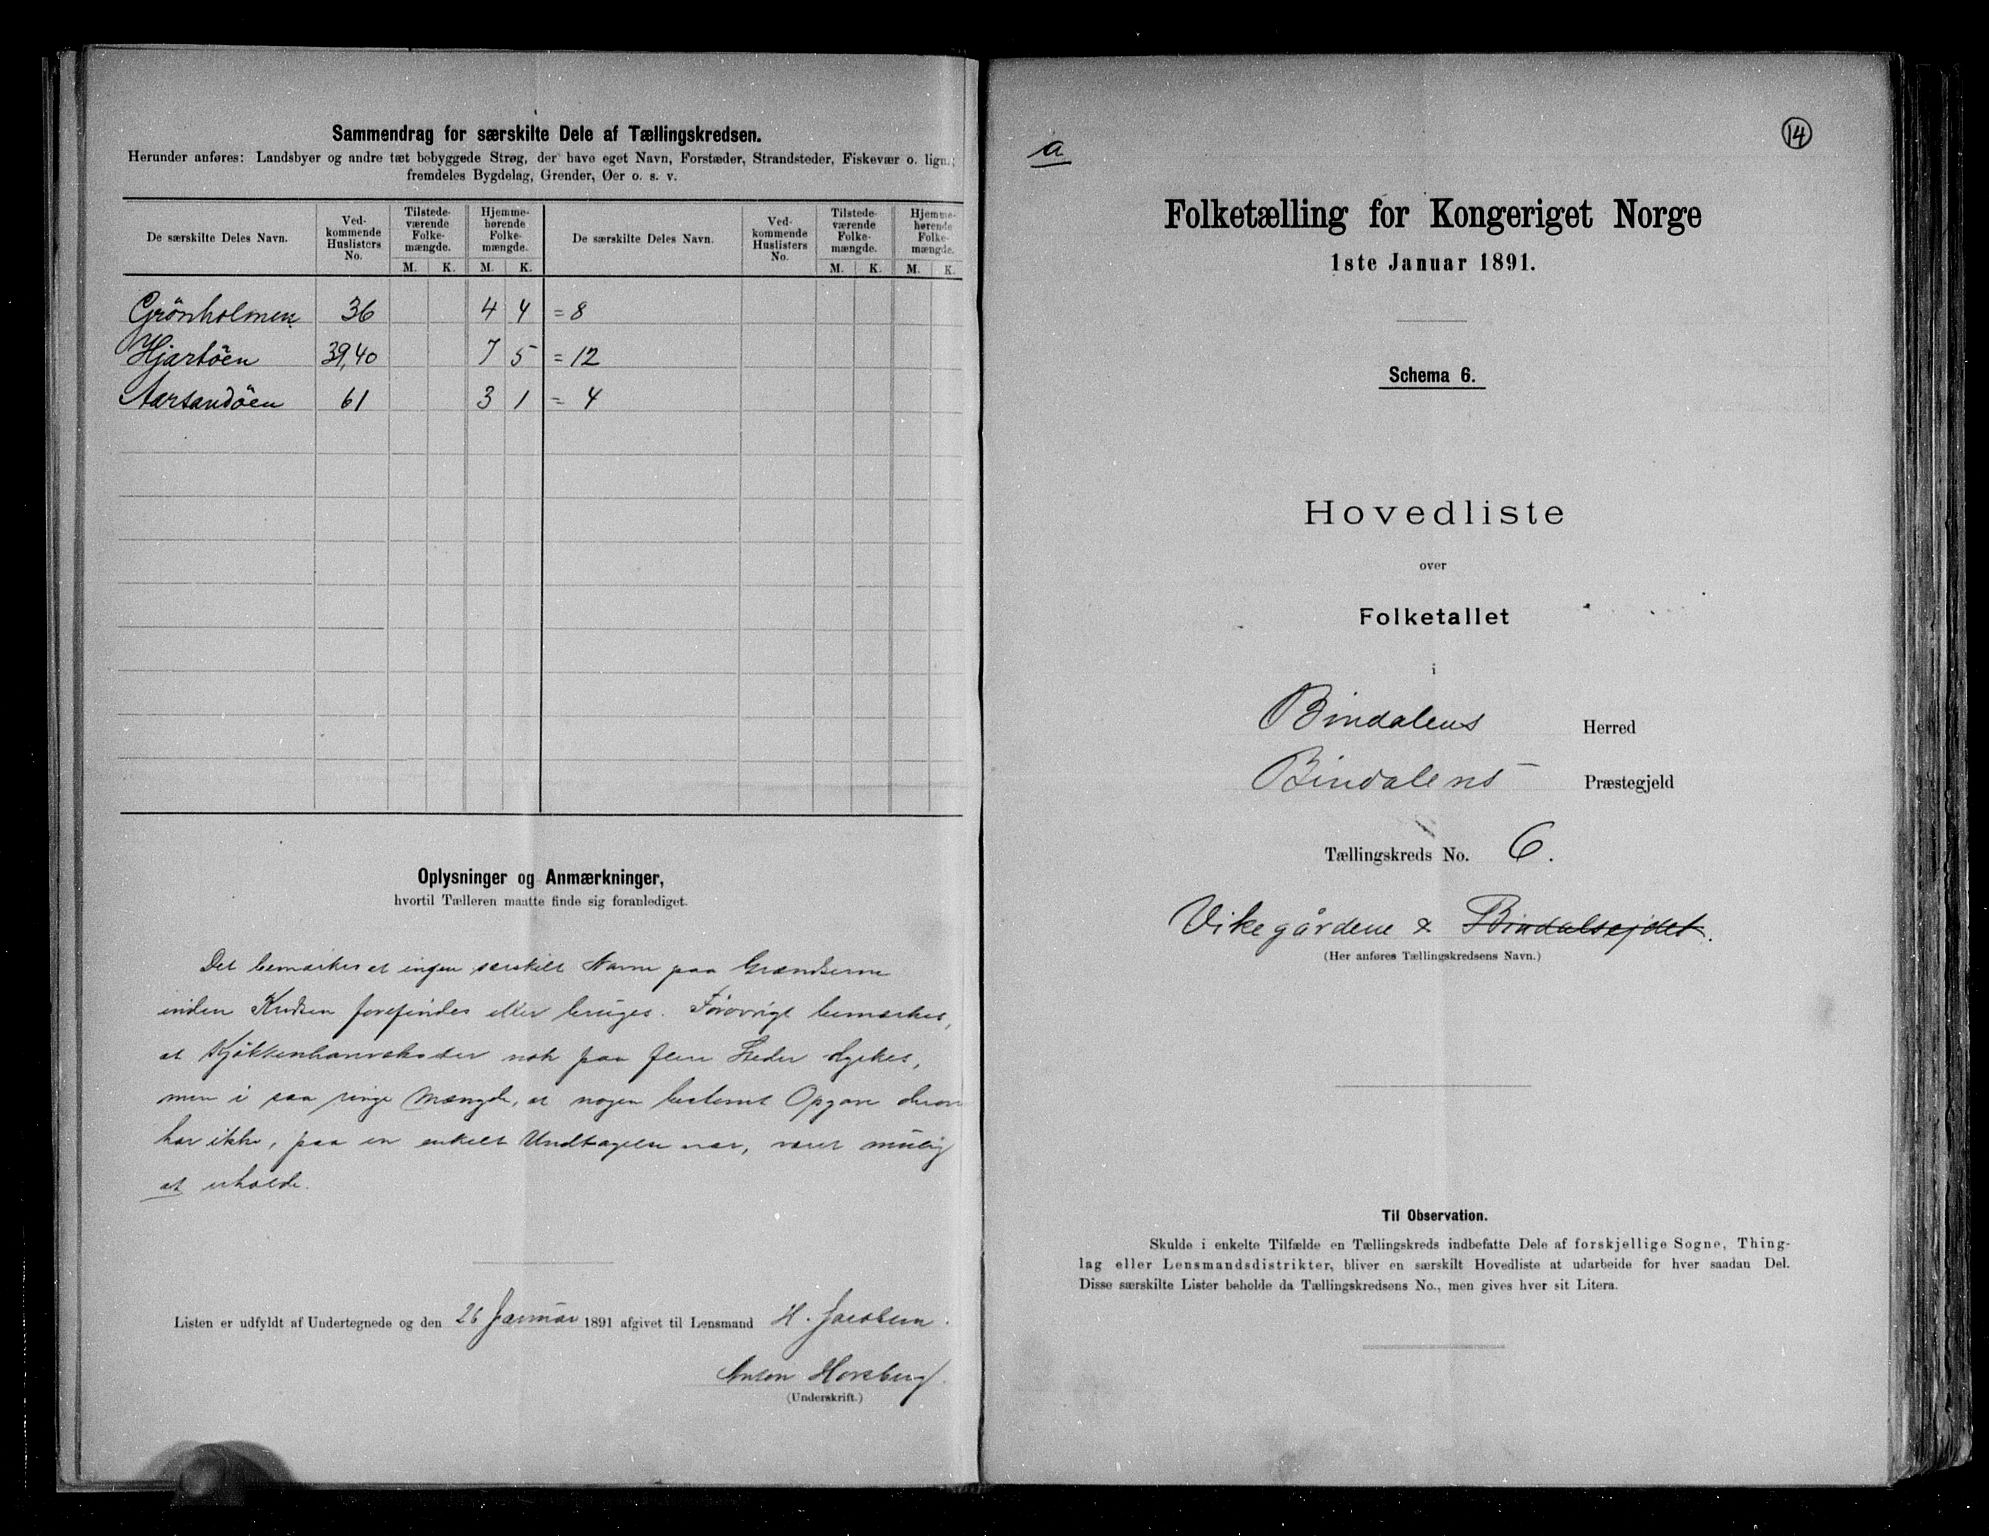 Sammendrag for særskilte Dele af Tællingskredsen.
Herunder anføres: Landsbyer og andre tæt bebyggede Strøg, der have eget Navn, Forstæder, Strandsteder, Fiskevær o. lign.;
fremdeles Bygdelag, Grender, Øer o. s. v.
De særskilte Deles Navn. Ved-kommende Huslisters No. Tilstede-værende Folke-mængde. Hjemme-hørende Folke-mængde. De særskilte Deles Navn. Ved-kommende Huslisters No. Tilstede-værende Folke-mængde. Hjemme-hørende Folke-mængde.
M. K. M. K. M. K. M. K.
Grönholmen 36 4 4 = 8
Hjartöen 39,40 7 5 = 12
Aarsandöen 61 3 1 = 4
Oplysninger og Anmærkninger,
hvortil Tælleren maatte finde sig foranlediget.
Det bemærkes at ingen særskilt Navne paa Grændserne
inden Kredsen forefindes eller bruges. Forøvrigt bemærkes,
at Kjøkkenhavevæxter nok paa flere Steder dyrkes,
men i saa ringe Mængde, at nogen bestemt Opgave derover
har ikke, paa en enkelt Undtagelse nær, været mulig
at erholde.
Listen er udfyldt af Undertegnede og den 26 Januar 1891 afgivet til Lensmand H. Jacobsen.
Anton Horsberg.
(Underskrift.)
a
14
Folketælling for Kongeriget Norge
1ste Januar 1891.
Schema 6.
Hovedliste
over
Folketallet
i
Bindalens Herred
Bindalens Præstegjeld
Tællingskreds No. 6.
Vikegårdene & Bindalsejdet.
(Her anføres Tællingskredsens Navn.)
Til Observation.
Skulde i enkelte Tilfælde en Tællingskreds indbefatte Dele af forskjellige Sogne, Thing-
lag eller Lensmandsdistrikter, bliver en særskilt Hovedliste at udarbeide for hver saadan Del.
Disse særskilte Lister beholde da Tællingskredsens No., men gives hver sit Litera.